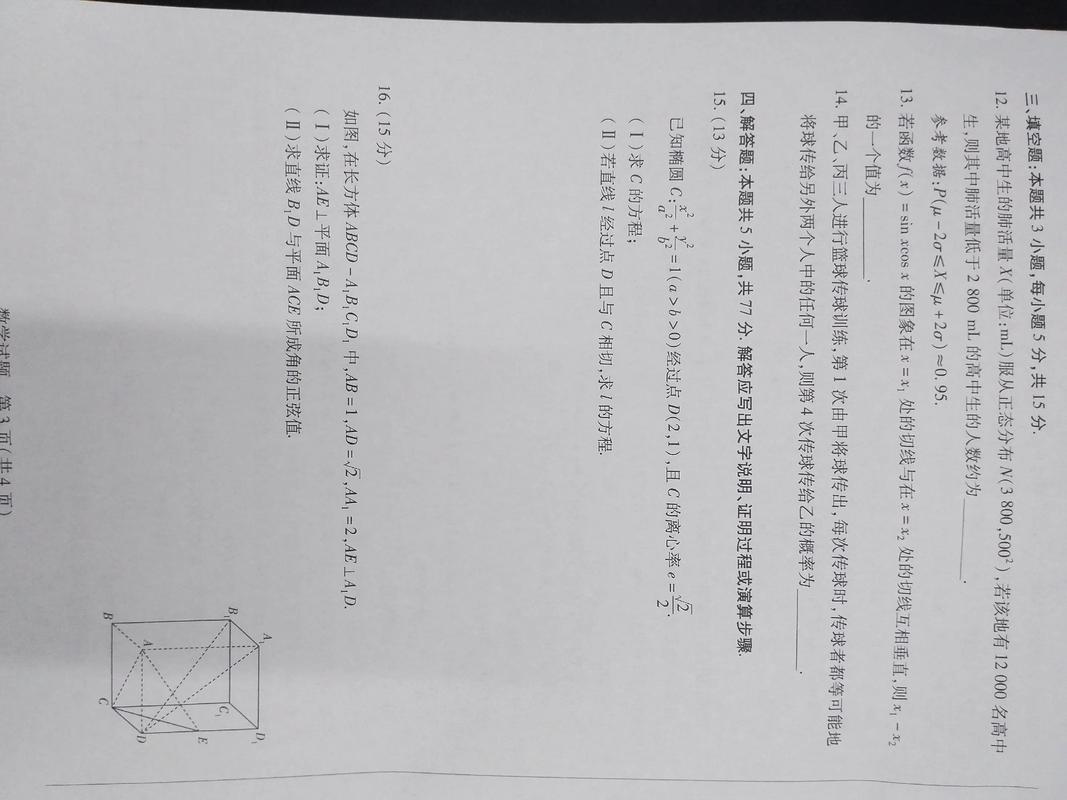 三、填空题:本题共 3 小题,每小题 5 分,共 15 分.
12. 某地高中生的肺活量 X(单位:mL)服从正态分布 N(3 800,500²),若该地有 12 000 名高中
生,则其中肺活量低于 2 800 mL 的高中生的人数约为________.
参考数据:P(μ-2σ≤X≤μ+2σ)≈0.95.
13. 若函数 f(x)=sin xcos x 的图象在 x=x₁ 处的切线与在 x=x₂ 处的切线互相垂直,则 x₁-x₂
的一个值为________.
14. 甲、乙、丙三人进行篮球传球训练,第 1 次由甲将球传出,每次传球时,传球者都等可能地
将球传给另外两个人中的任何一人,则第 4 次传球传给乙的概率为________.
四、解答题:本题共 5 小题,共 77 分. 解答应写出文字说明、证明过程或演算步骤.
15. (13 分)
已知椭圆 C:x²/a²+y²/b²=1(a>b>0)经过点 D(2,1),且 C 的离心率 e=√2/2.
(Ⅰ)求 C 的方程;
(Ⅱ)若直线 l 经过点 D 且与 C 相切,求 l 的方程.
16. (15 分)
如图,在长方体 ABCD-A₁B₁C₁D₁ 中,AB=1,AD=√2,AA₁=2,AE⊥A₁D.
(Ⅰ)求证:AE⊥平面 A₁B₁D;
(Ⅱ)求直线 B₁D 与平面 ACE 所成角的正弦值.
A₁
D₁
B₁
C₁
E
A
D
B
C
数学试题 第 3 页(共 4 页)